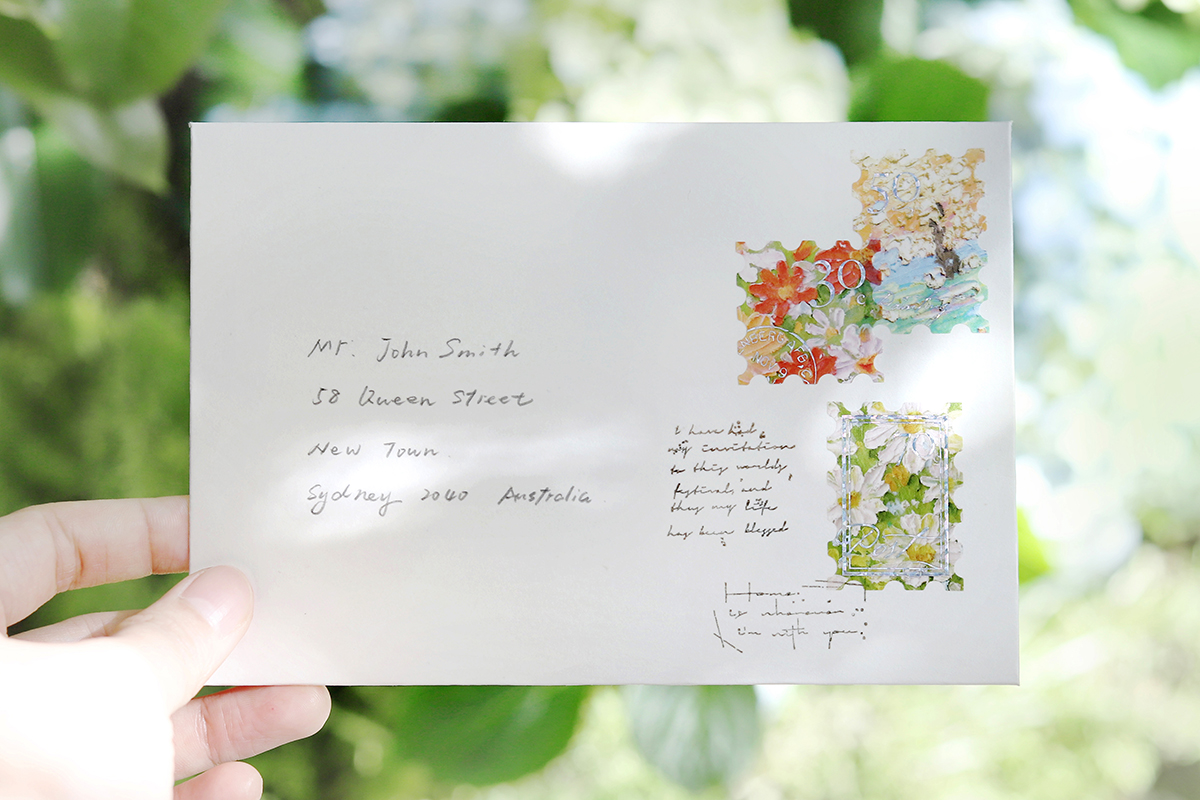 Mr. John Smith
58 Queen Street
New Town
Sydney 2040 Australia
50
30
C
I have had
my invitation
to this world's
festival, and
thus my life
has been blessed
Home
is wherever
i'm with you.